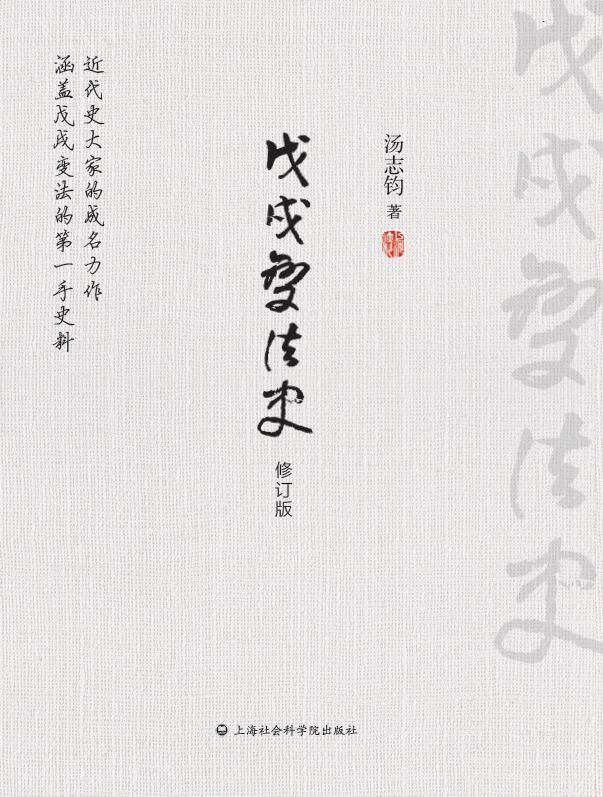 戊戌变法史
汤志钧 著
戊戌變法史
修订版
近代史大家的成名力作
涵盖戊戌变法的第一手史料
上海社会科学院出版社